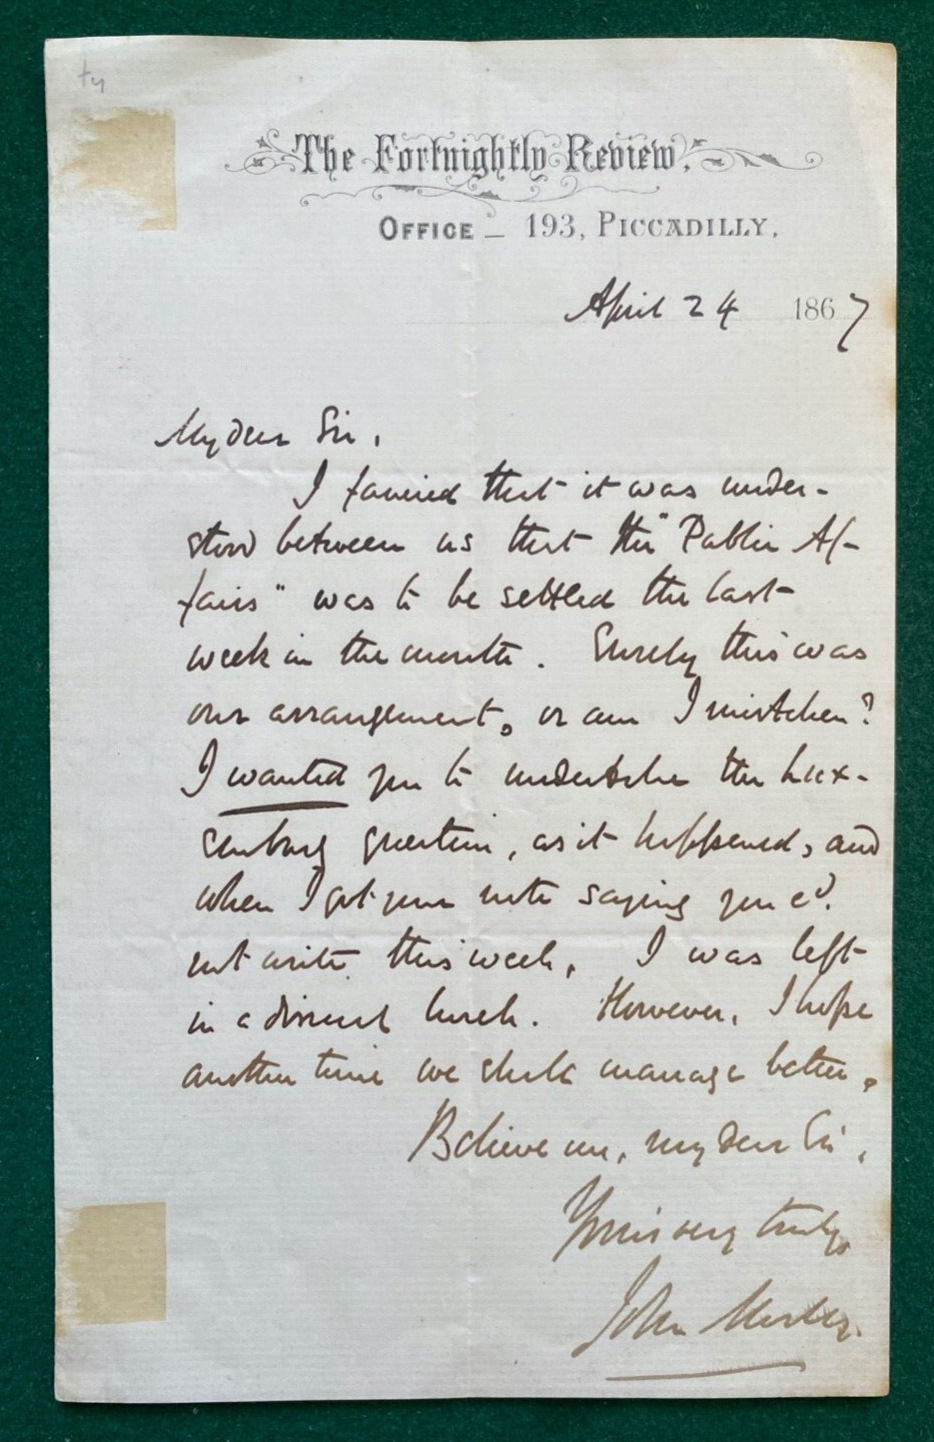 The Fortnightly Review.
OFFICE _ 193, PICCADILLY.
April 24 1867
My dear Sir,
I fancied that it was under-
stood between us that the "Public Af-
fairs" was to be settled the last
week in the month. Surely this was
our arrangement, or am I mistaken?
I wanted you to undertake the Lux-
emburg question, as it happened, and
when I got your note saying you cd.
not write this week, I was left
in a dismal lurch. However, I hope
another time we shall manage better.
Believe me, my dear Sir,
Yours very truly,
John Morley.